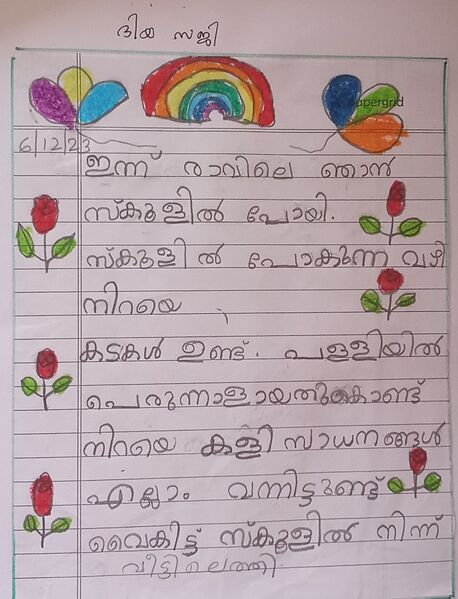 ദിയ സജി
Papergrid
6/12/23
ഇന്ന് രാവിലെ ഞാൻ
സ്കൂളിൽ പോയി.
സ്കൂളിൽ പോകുന്ന വഴി
നിറയെ
കടകൾ ഉണ്ട്. പള്ളിയിൽ
പെരുന്നാളായതുകൊണ്ട്
നിറയെ കളി സാധനങ്ങൾ
എല്ലാം വന്നിട്ടുണ്ട്
വൈകിട്ട് സ്കൂളിൽ നിന്ന്
വീട്ടിലെത്തി.